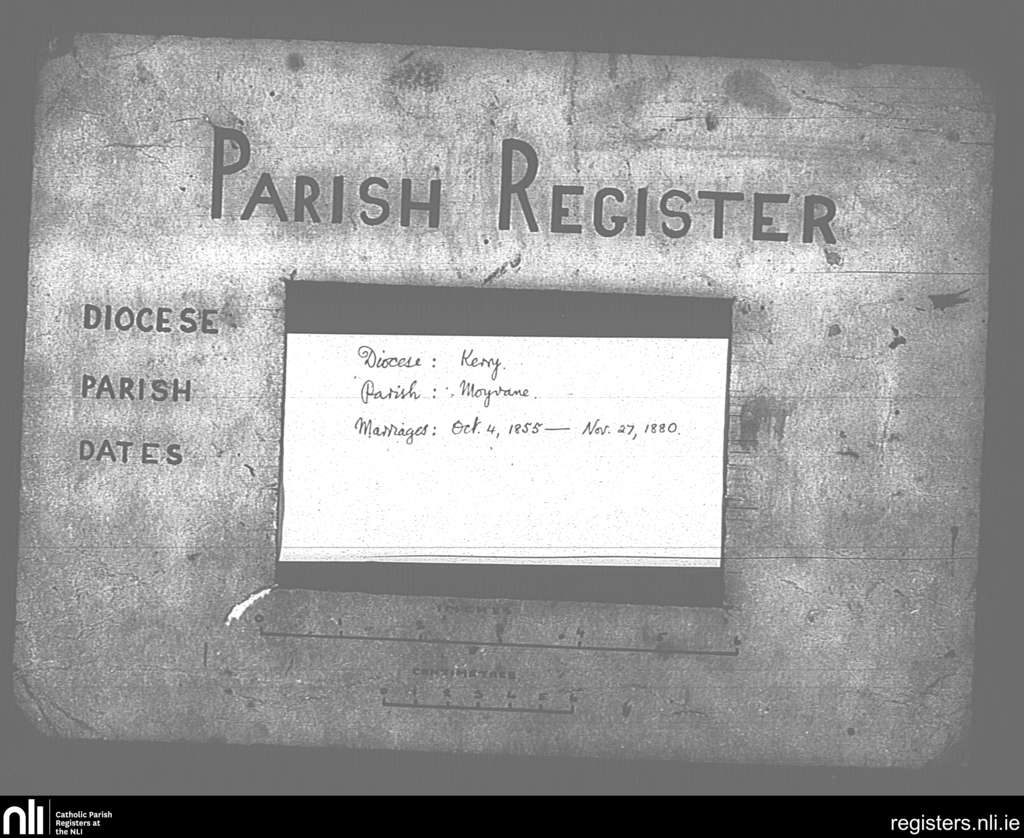 PARISH REGISTER
DIOCESE
PARISH
DATES
Diocese : Kerry.
Parish : Moyvane.
Marriages : Oct. 4, 1855 — Nov. 27, 1880.
INCHES
CENTIMETRES
nli
Catholic Parish
Registers at
the NLI
registers.nli.ie